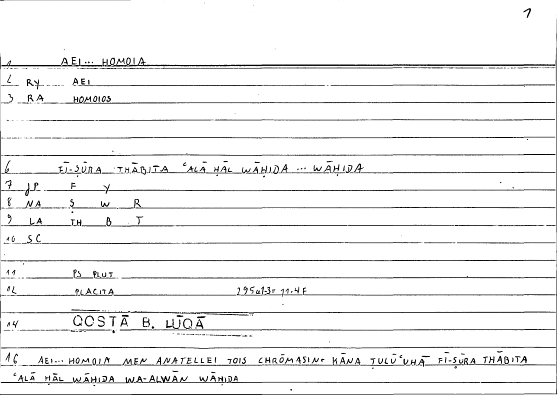 1
1 AEI... HOMOIA
2 RY AEI
3 RA HOMOIOS
6 FĪ-ṢŪRA THĀBITA ʿALĀ ḤĀL WĀḤIDA ... WĀḤIDA
7 JP F Y
8 NA Ṣ W R
9 LA TH B T
10 SC
11 PS PLUT
12 PLACITA
14 QOSṬĀ B. LŪQĀ
16 AEI... HOMOIA MEN ANATELLEI TOIS CHRŌMASIN: KĀNA ṬULŪʿUHĀ FĪ-ṢŪRA THĀBITA
ʿALĀ ḤĀL WĀḤIDA WA-ALWĀN WĀḤIDA